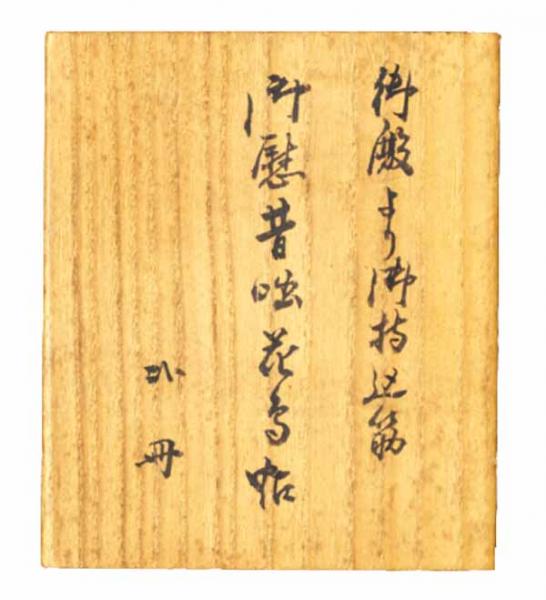 御殿より御持込筋
御慰昔咄花鳥帖
外冊